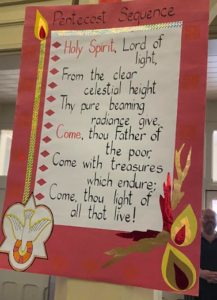 Pentecost Sequence
Holy Spirit, Lord of
light,
From the clear
celestial height
Thy pure beaming
radiance give.
Come, thou Father of
the poor,
Come with treasures
which endure;
Come, thou light of
all that live!